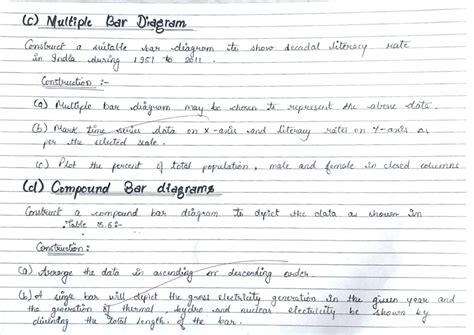 (c) Multiple Bar Diagram
Construct a suitable bar diagram to show decadal literacy rate
in India during 1951 to 2011.
Construction :-
(a) Multiple bar diagram may be chosen to represent the above data.
(b) Mark time series data on X-axis and literacy rates on Y-axis as
per the selected scale.
(c) Plot the percent of total population, male and female in closed columns
(d) Compound Bar diagrams
Construct a compound bar diagram to depict the data as shown in
Table 3.6:-
Construction:
(a) Arrange the data in ascending or descending order.
(b) A single bar will depict the gross electricity generation in the given year and
the generation of thermal, hydro and nuclear electricity be shown by
dividing the total length of the bar.